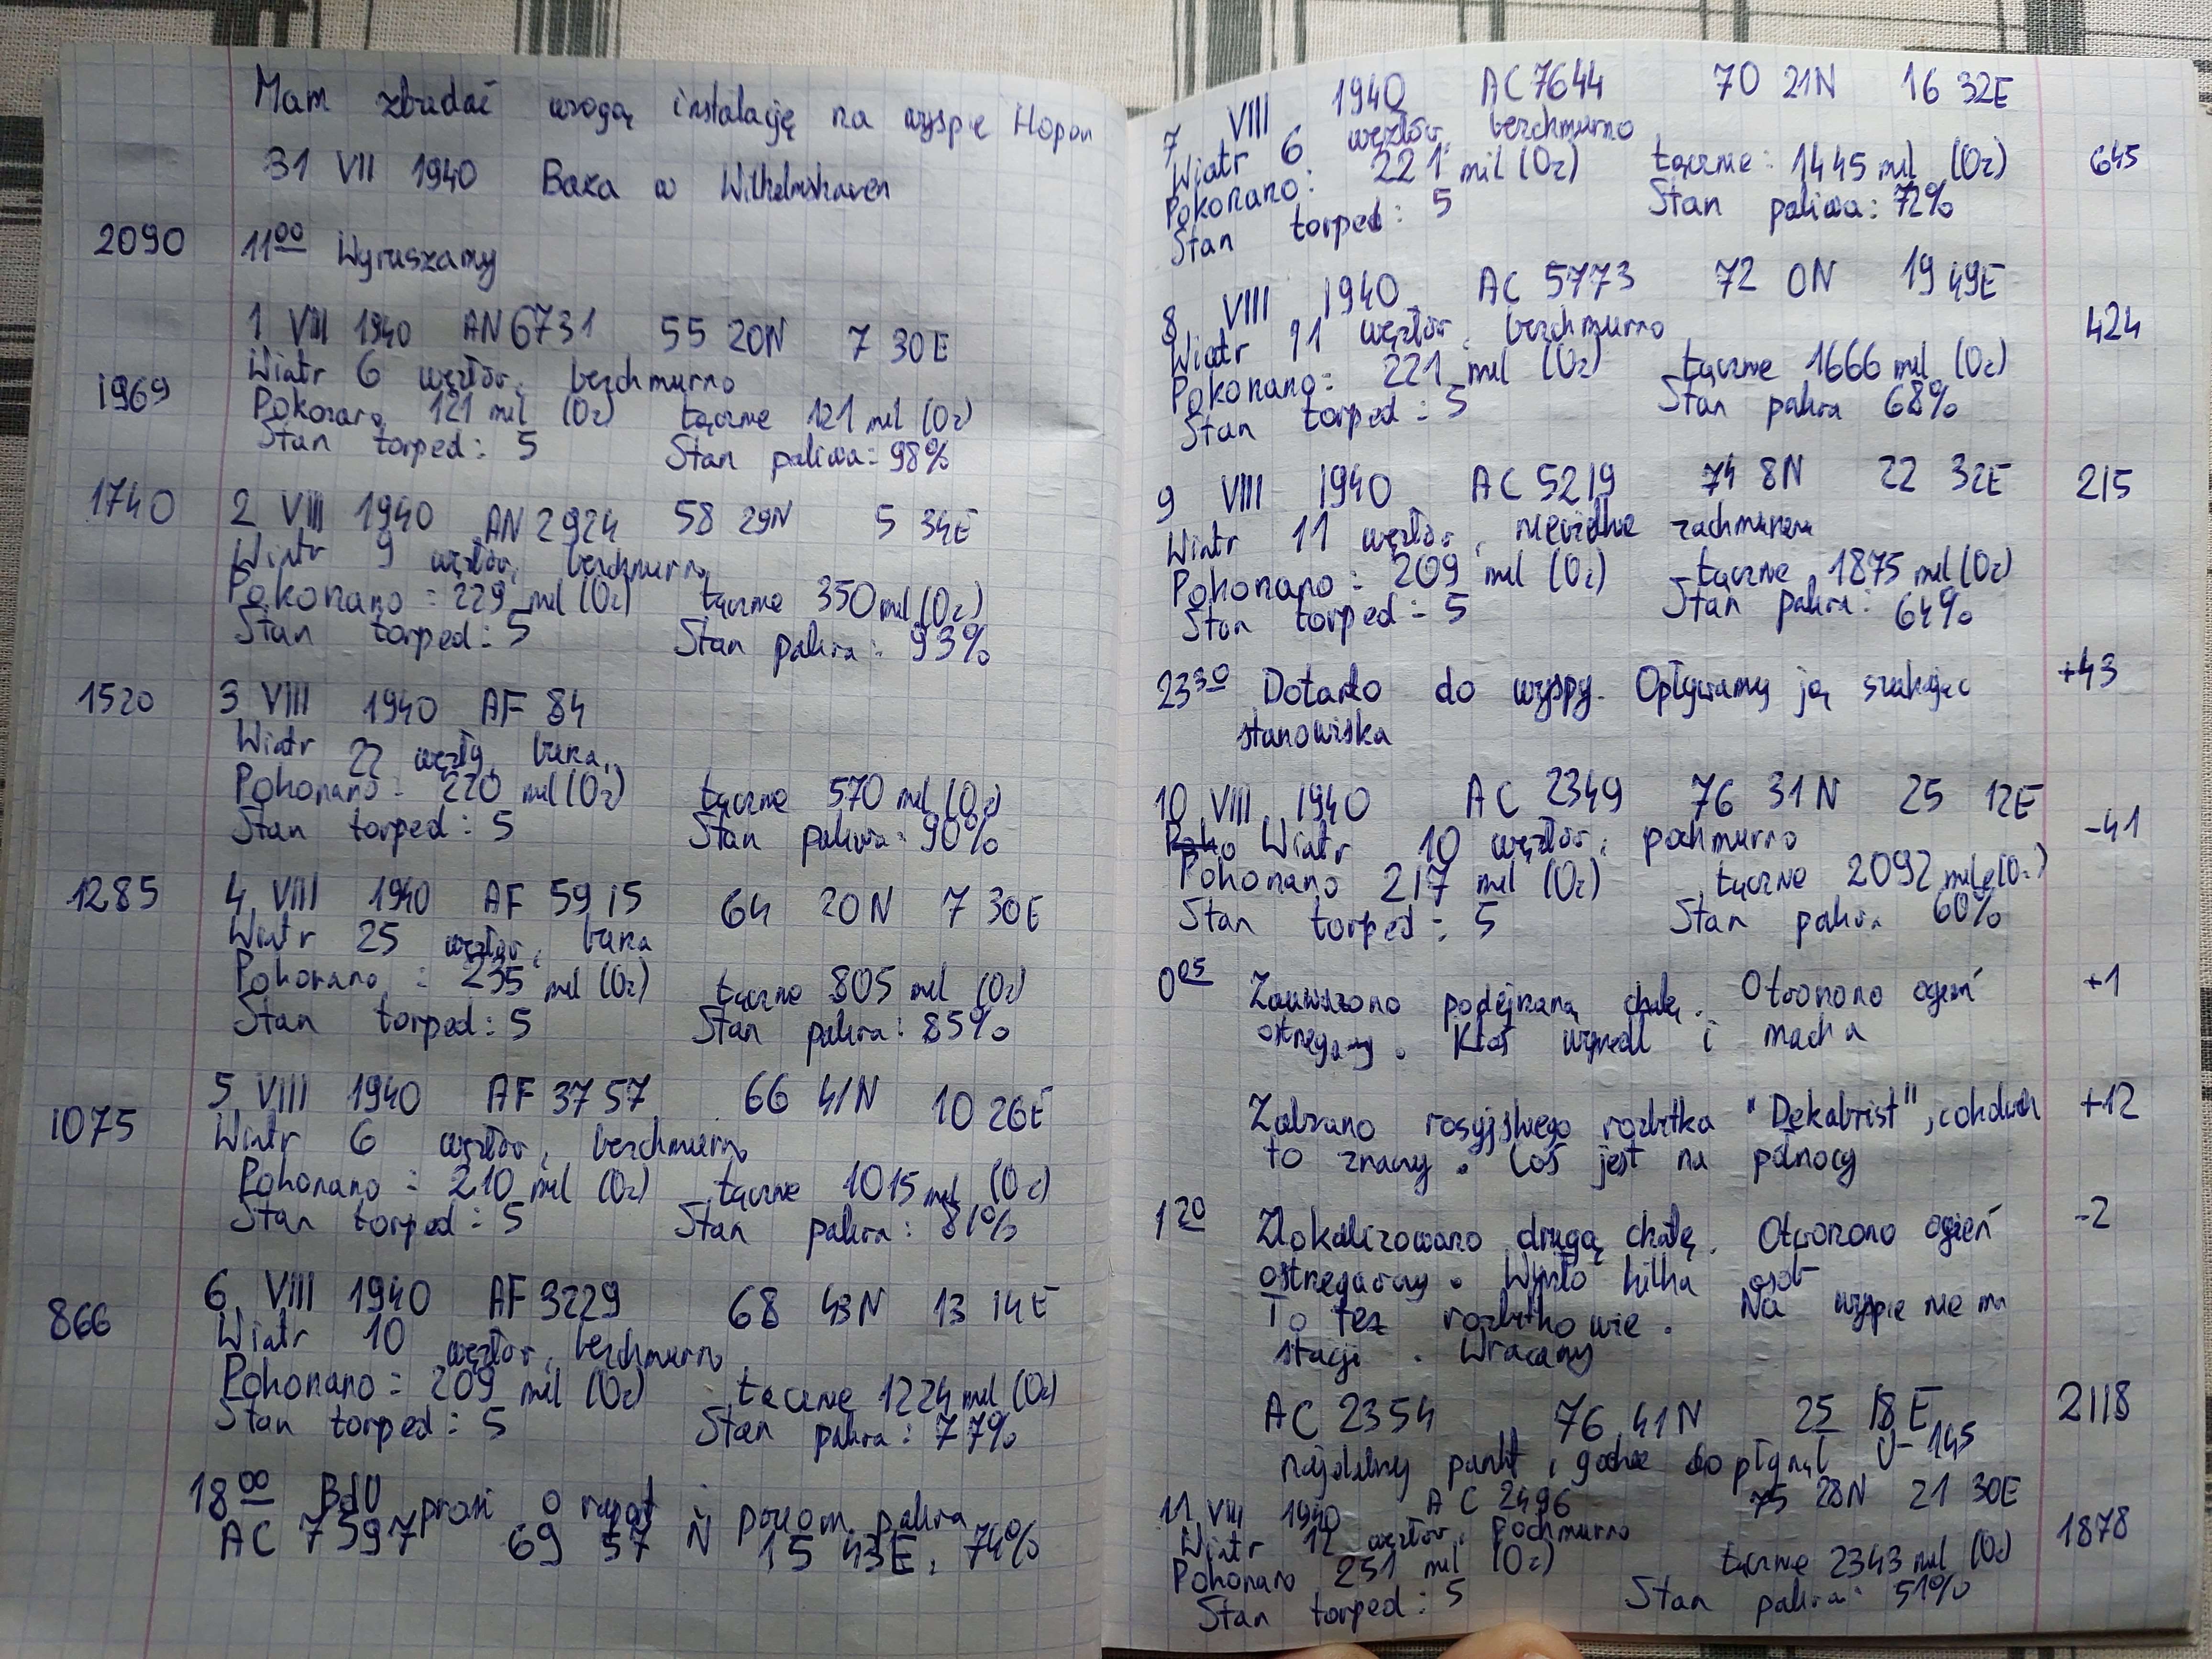 Mam zbadać wrogą instalację na wyspie Hopon
31 VII 1940 Baza w Wilhelmshaven
2090 11 00 Wyruszamy
1 VIII 1940 AN 6731 55 20N 7 30E
Wiatr 6 węzłów, bezchmurno
1969 Pokonano 121 mil (O2) Łącznie 121 mil (O2)
Stan torped: 5 Stan paliwa: 98%
1740 2 VIII 1940 AN 2924 58 29N 5 34E
Wiatr 9 węzłów, bezchmurno
Pokonano = 229 mil (O2) Łącznie 350 mil (O2)
Stan torped: 5 Stan paliwa: 93%
1520 3 VIII 1940 AF 84
Wiatr 22 węzły, burza,
Pokonano = 220 mil (O2) Łącznie 570 mil (O2)
Stan torped: 5 Stan paliwa: 90%
1285 4 VIII 1940 AF 5915 64 20N 7 30E
Wiatr 25 węzłów, burza
Pokonano = 235 mil (O2) Łącznie 805 mil (O2)
Stan torped: 5 Stan paliwa: 85%
5 VIII 1940 AF 3757 66 41N 10 26E
1075 Wiatr 6 węzłów, bezchmurno
Pokonano = 210 mil (O2) Łącznie 1015 mil (O2)
Stan torped: 5 Stan paliwa: 81%
6 VIII 1940 AF 3229 68 43N 13 14E
866 Wiatr 10 węzłów, bezchmurno
Pokonano = 209 mil (O2) Łącznie 1224 mil (O2)
Stan torped: 5 Stan paliwa: 77%
18 00 BdU prosi o raport i poziom paliwa
AC 7597 69 57 N 15 43E, 74%
7 VIII 1940 AC 7644 70 21N 16 32E
Wiatr 6 węzłów, bezchmurno
Pokonano: 221 mil (O2) Łącznie: 1445 mil (O2) 645
Stan torped: 5 Stan paliwa: 72%
8 VIII 1940 AC 5773 72 0N 19 49E
Wiatr 11 węzłów, bezchmurno 424
Pokonano = 221 mil (O2) Łącznie 1666 mil (O2)
Stan torped: 5 Stan paliwa 68%
9 VIII 1940 AC 5219 74 8N 22 32E 215
Wiatr 11 węzłów, niewielkie zachmurzenie
Pokonano = 209 mil (O2) Łącznie 1875 mil (O2)
Stan torped = 5 Stan paliwa: 64%
23 30 Dotarto do wyspy. Opływamy ją szukając +43
stanowiska
10 VIII 1940 AC 2349 76 31N 25 12E
Wiatr 10 węzłów, pochmurno -41
Pokonano 217 mil (O2) Łącznie 2092 mile (O2)
Stan torped: 5 Stan paliwa 60%
0 05 Zauważono podejrzaną chatę. Otworzono ogień +1
ostrzegawczy. Ktoś wyszedł i macha
Zabrano rosyjskiego rozbitka "Dekabrist", cokolwiek +12
to znaczy. Coś jest na północy
1 20 Zlokalizowano drugą chatę. Otworzono ogień -2
ostrzegawczy. Wyszło kilka osób
To też rozbitkowie. Na wyspie nie ma
stacji. Wracamy
AC 2354 76 41N 25 18E 2118
najdalszy punkt, gdzie dopłynął U-145
11 VIII 1940 AC 2496 75 28N 21 30E
Wiatr 12 węzłów, pochmurno 1878
Pokonano 251 mil (O2) Łącznie 2343 mil (O2)
Stan torped: 5 Stan paliwa: 51%